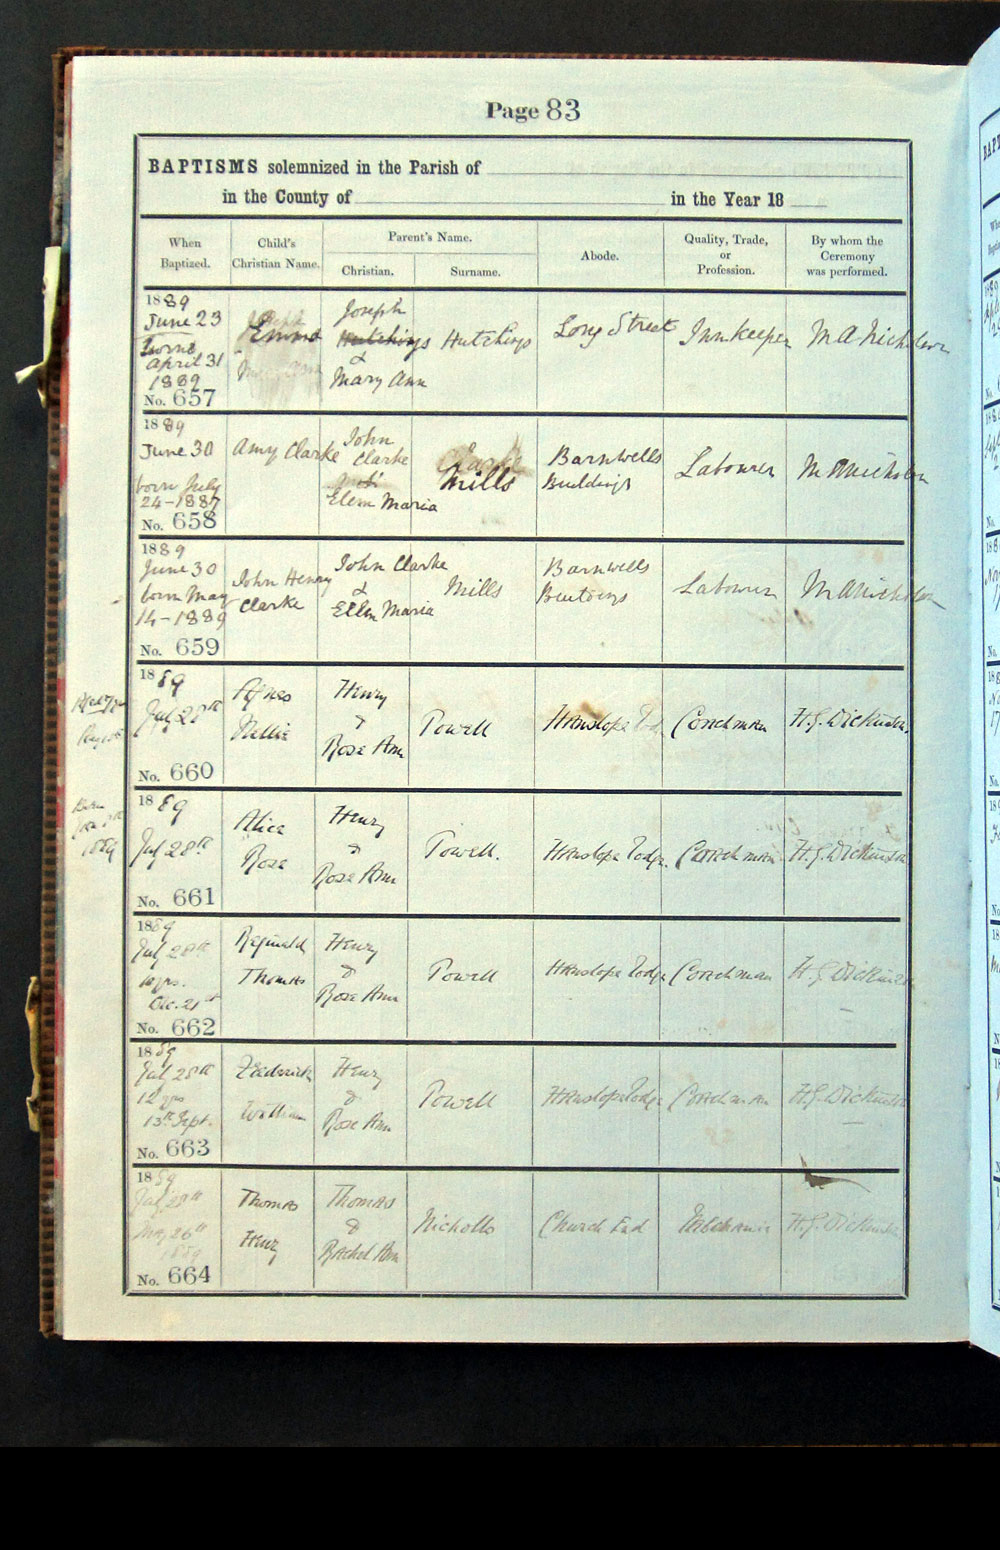 Page 83
BAPTISMS solemnized in the Parish of
in the County of in the Year 18
When Baptized.
Child's Christian Name.
Parent's Name.
Christian.
Surname.
Abode.
Quality, Trade, or Profession.
By whom the Ceremony was performed.
1889
June 23
borne
april 31
1889
No. 657
Emma
Joseph
Hutchings
&
Mary Ann
Hutchings
Long Street
Innkeeper
M A Nicholson
1889
June 30
born July
24-1887
No. 658
Amy Clarke
John
Clarke
Ellen Maria
Clarke
Mills
Barnwells
Buildings
Labourer
M A Nicholson
1889
June 30
born May
14-1889
No. 659
John Henry
Clarke
John Clarke
&
Ellen Maria
Mills
Barnwells
Labourer
M A Nicholson
1889
July 28th
No. 660
Agnes
Nellie
Henry
&
Rose Ann
Powell
Hanslope
Coachman
H.G. Dickinson
Born
1889
1889
July 28th
No. 661
Alice
Rose
Henry
&
Rose Ann
Powell.
Hanslope Lodge
Coachman
H.G. Dickinson
1889
July 28th
10 yrs.
Dec. 21st
No. 662
Reginald
Thomas
Henry
&
Rose Ann
Powell
Hanslope Lodge
Coachman
H.G. Dickinson
1889
July 28th
12 yrs
13th Sept.
No. 663
Frederick
William
Henry
&
Rose Ann
Powell
Hanslope Lodge
Coachman
H.G. Dickinson
1889
July 28th
May 26th
1889
No. 664
Thomas
Henry
Thomas
&
Rachel Ann
Nicholls
Church End
Mechanic
H.G. Dickinson